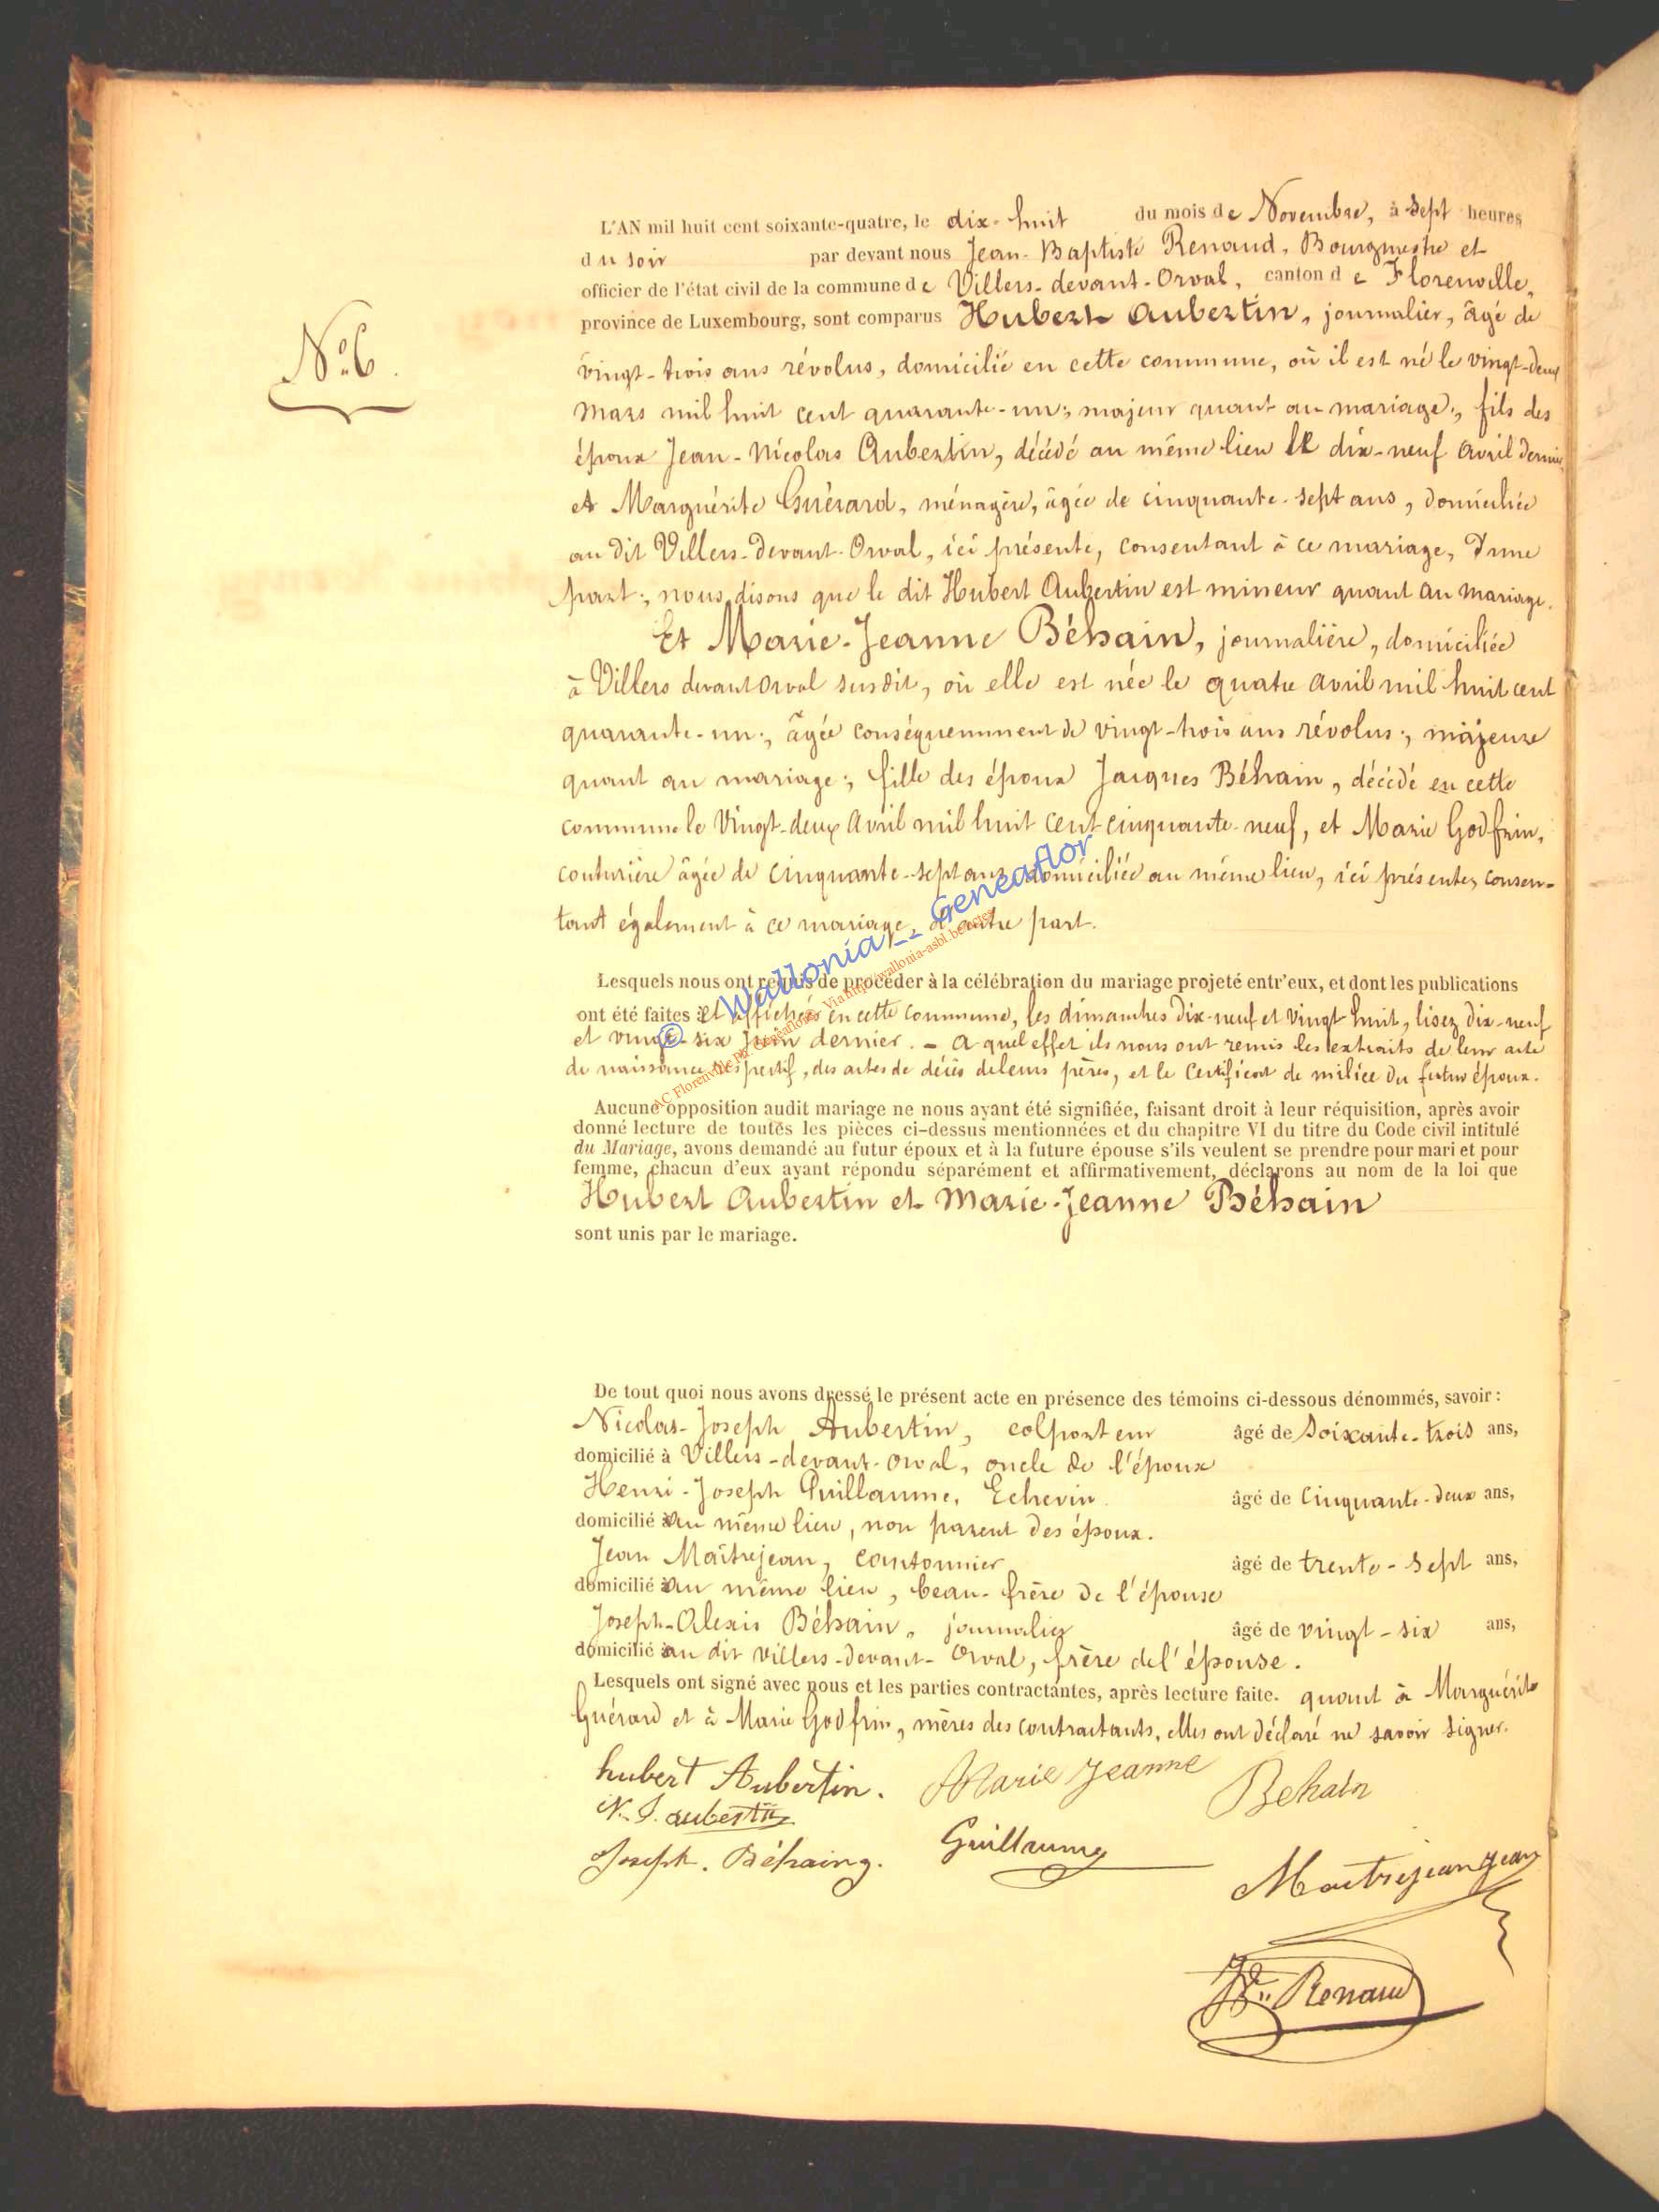 N.o 6.
L'AN mil huit cent soixante-quatre, le dix-huit du mois de Novembre, à Sept heures
du soir par devant nous Jean-Baptiste Renaud, Bourgmestre et
officier de l'état civil de la commune de Villers-devant-Orval, canton de Florenville,
province de Luxembourg, sont comparus Hubert Aubertin, journalier, âgé de
vingt-trois ans révolus, domicilié en cette commune, où il est né le vingt-deux
Mars mil huit cent quarante-un; majeur quant au mariage; fils des
époux Jean-Nicolas Aubertin, décédé au même lieu le dix-neuf avril dernier,
et Marguérite Guérard, ménagère, âgée de cinquante-sept ans, domiciliée
au dit Villers-Devant-Orval, ici présente, consentant à ce mariage, d'une
part; nous disons que le dit Hubert Aubertin est mineur quant au mariage.
Et Marie-Jeanne Béhain, journalière, domiciliée
à Villers devant Orval susdit, où elle est née le quatre avril mil huit cent
quarante-un; âgée conséquemment de vingt-trois ans révolus; majeure
quant au mariage; fille des époux Jacques Béhain, décédé en cette
commune le Vingt-deux avril mil huit cent cinquante-neuf, et Marie Godfrin,
couturière âgée de cinquante-sept ans, domiciliée au même lieu, ici présente, consen-
tant également à ce mariage, d'autre part.
Lesquels nous ont requis de procéder à la célébration du mariage projeté entr'eux, et dont les publications
ont été faites et affichées en cette commune, les dimanches dix-neuf et vingt huit, lisez dix-neuf
et vingt-six juin dernier. - A quel effet ils nous ont remis les extraits de leur acte
de naissance respectif, des actes de décès de leurs pères, et le Certificat de milice du futur époux.
Aucune opposition audit mariage ne nous ayant été signifiée, faisant droit à leur réquisition, après avoir
donné lecture de toutes les pièces ci-dessus mentionnées et du chapitre VI du titre du Code civil intitulé
du Mariage, avons demandé au futur époux et à la future épouse s'ils veulent se prendre pour mari et pour
femme, chacun d'eux ayant répondu séparément et affirmativement, déclarons au nom de la loi que
Hubert Aubertin et Marie-Jeanne Béhain
sont unis par le mariage.
De tout quoi nous avons dressé le présent acte en présence des témoins ci-dessous dénommés, savoir :
Nicolas-Joseph Aubertin, colporteur âgé de Soixante-trois ans,
domicilié à Villers-devant-Orval, oncle de l'époux
Henri-Joseph Guillaume, Echevin âgé de Cinquante-deux ans,
domicilié au même lieu, non parent des époux.
Jean Maîtrejean, cantonnier âgé de trente-sept ans,
domicilié au même lieu, beau-frère de l'épouse
Joseph-Alexis Béhain, journalier âgé de vingt-six ans,
domicilié au dit Villers-devant-Orval, frère de l'épouse.
Lesquels ont signé avec nous et les parties contractantes, après lecture faite. quant à Marguérite
Guérard et à Marie Godfrin, mères des contractants, elles ont déclaré ne savoir signer.
hubert Aubertin. Marie Jeanne Behain
N. J. aubertin
Joseph. Béhaing. Guillaume
Maitrejean Jean
JB. Renaud
© Wallonia__Geneaflor
AC Florenville par Généaflore Via http://wallonia-asbl.be/actes